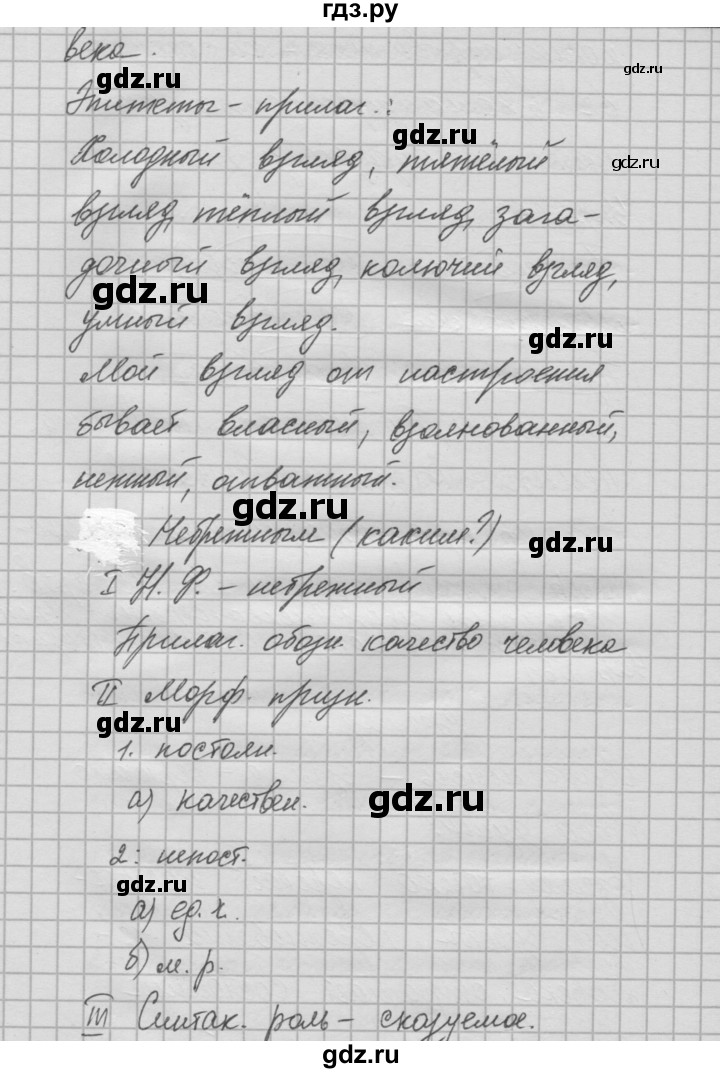 гдз.ру
века.
gdz.ru
gdz.ru
Эпитеты – прилаг.:
gdz.ru
Холодный взгляд, тяжёлый
gdz.ru
взгляд, тёплый взгляд, зага-
дочный взгляд, колючий взгляд,
gdz.ru
умный взгляд.
gdz.ru
Мой взгляд от настроения
бывает власный, взолнованный,
gdz.ru
нежный, отважный.
gdz.ru
Небрежным (каким?)
gdz.ru
I Н. Ф. – небрежный
Прилаг. обозн. качество человека
II Морф. призн.
gdz.ru
1. постоян.
а) качествен.
gdz.ru
2: непост.
gdz.ru
а) ед. ч.
б) м. р.
III Синтак. роль – сказуемое.
gdz.ru